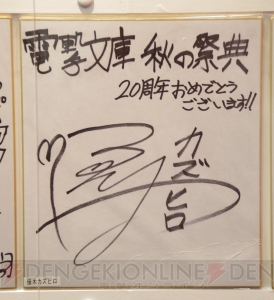 電撃文庫 秋の祭典
20周年おめでとう
ございます!!
カズヒロ
榎木カズヒロ
DENGEKIONLINE